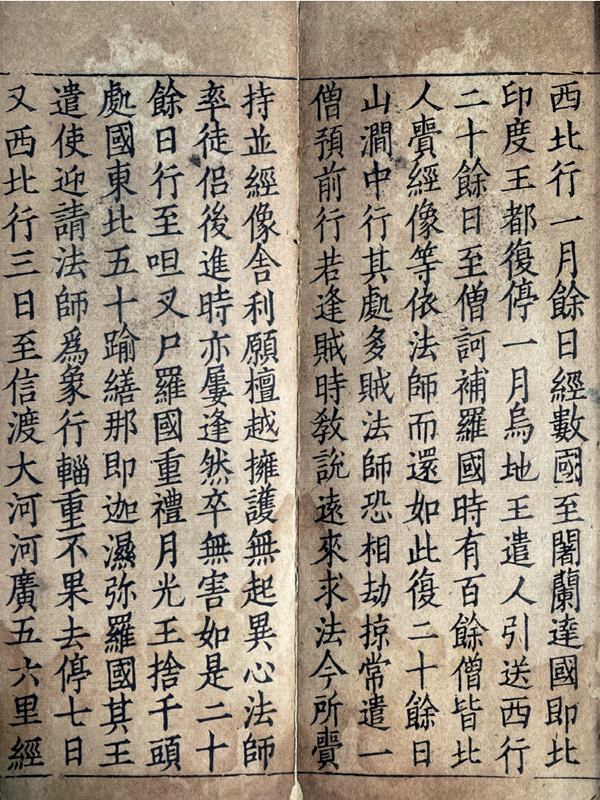 西北行一月餘日經數國至闍蘭達國即北
印度王都復停一月烏地王遣人引送西行
二十餘日至僧訶補羅國時有百餘僧皆北
人賷經像等依法師而還如此復二十餘日
山澗中行其處多賊法師恐相劫掠常遣一
僧預前行若逢賊時教說遠來求法今所賷
持並經像舎利願檀越擁護無起異心法師
率徒侶後進時亦屢逢然卒無害如是二十
餘日行至呾叉尸羅國重禮月光王捨千頭
處國東北五十踰繕那即迦濕弥羅國其王
遣使迎請法師爲象行輜重不果去停七日
又西北行三日至信渡大河河廣五六里經